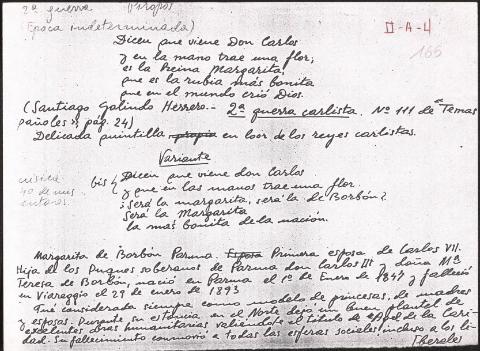 2ª guerra Piropos
Epoca indeterminada)
II-A-4
165
Dicen que viene Don Carlos
y en la mano trae una flor;
es la Reina Margarita,
que es la rubia más bonita
que en el mundo crió Dios.
(Santiago Galindo Herrero.- 2ª guerra carlista. Nº 111 de "Temas
pañoles", pág. 24)
Delicada quintilla propia en loor de los reyes carlistas.
Variante
bis { Dicen que viene don Carlos
y que en las manos trae una flor.
¿Será la margarita, será la de Borbón?
Será la Margarita
la más bonita de la nación.
40 de mis
Margarita de Borbón Parma. Esposa Primera esposa de Carlos VII.
Hija de los Duques soberanos de Parma don Carlos III y doña Mª
Teresa de Borbón, nació en Parma el 1º de Enero de 1847 y falleció
en Viareggio el 29 de enero de 1893
Fué considerada siempre como modelo de princesas, de madres
y esposas. Durante su estancia en el Norte dejó un buen plantel de
excelentes obras humanitarias valiéndole el título de "Angel de la Cari-
dad. Su fallecimiento conmovió a todas las esferas sociales incluso a los li-
[berales